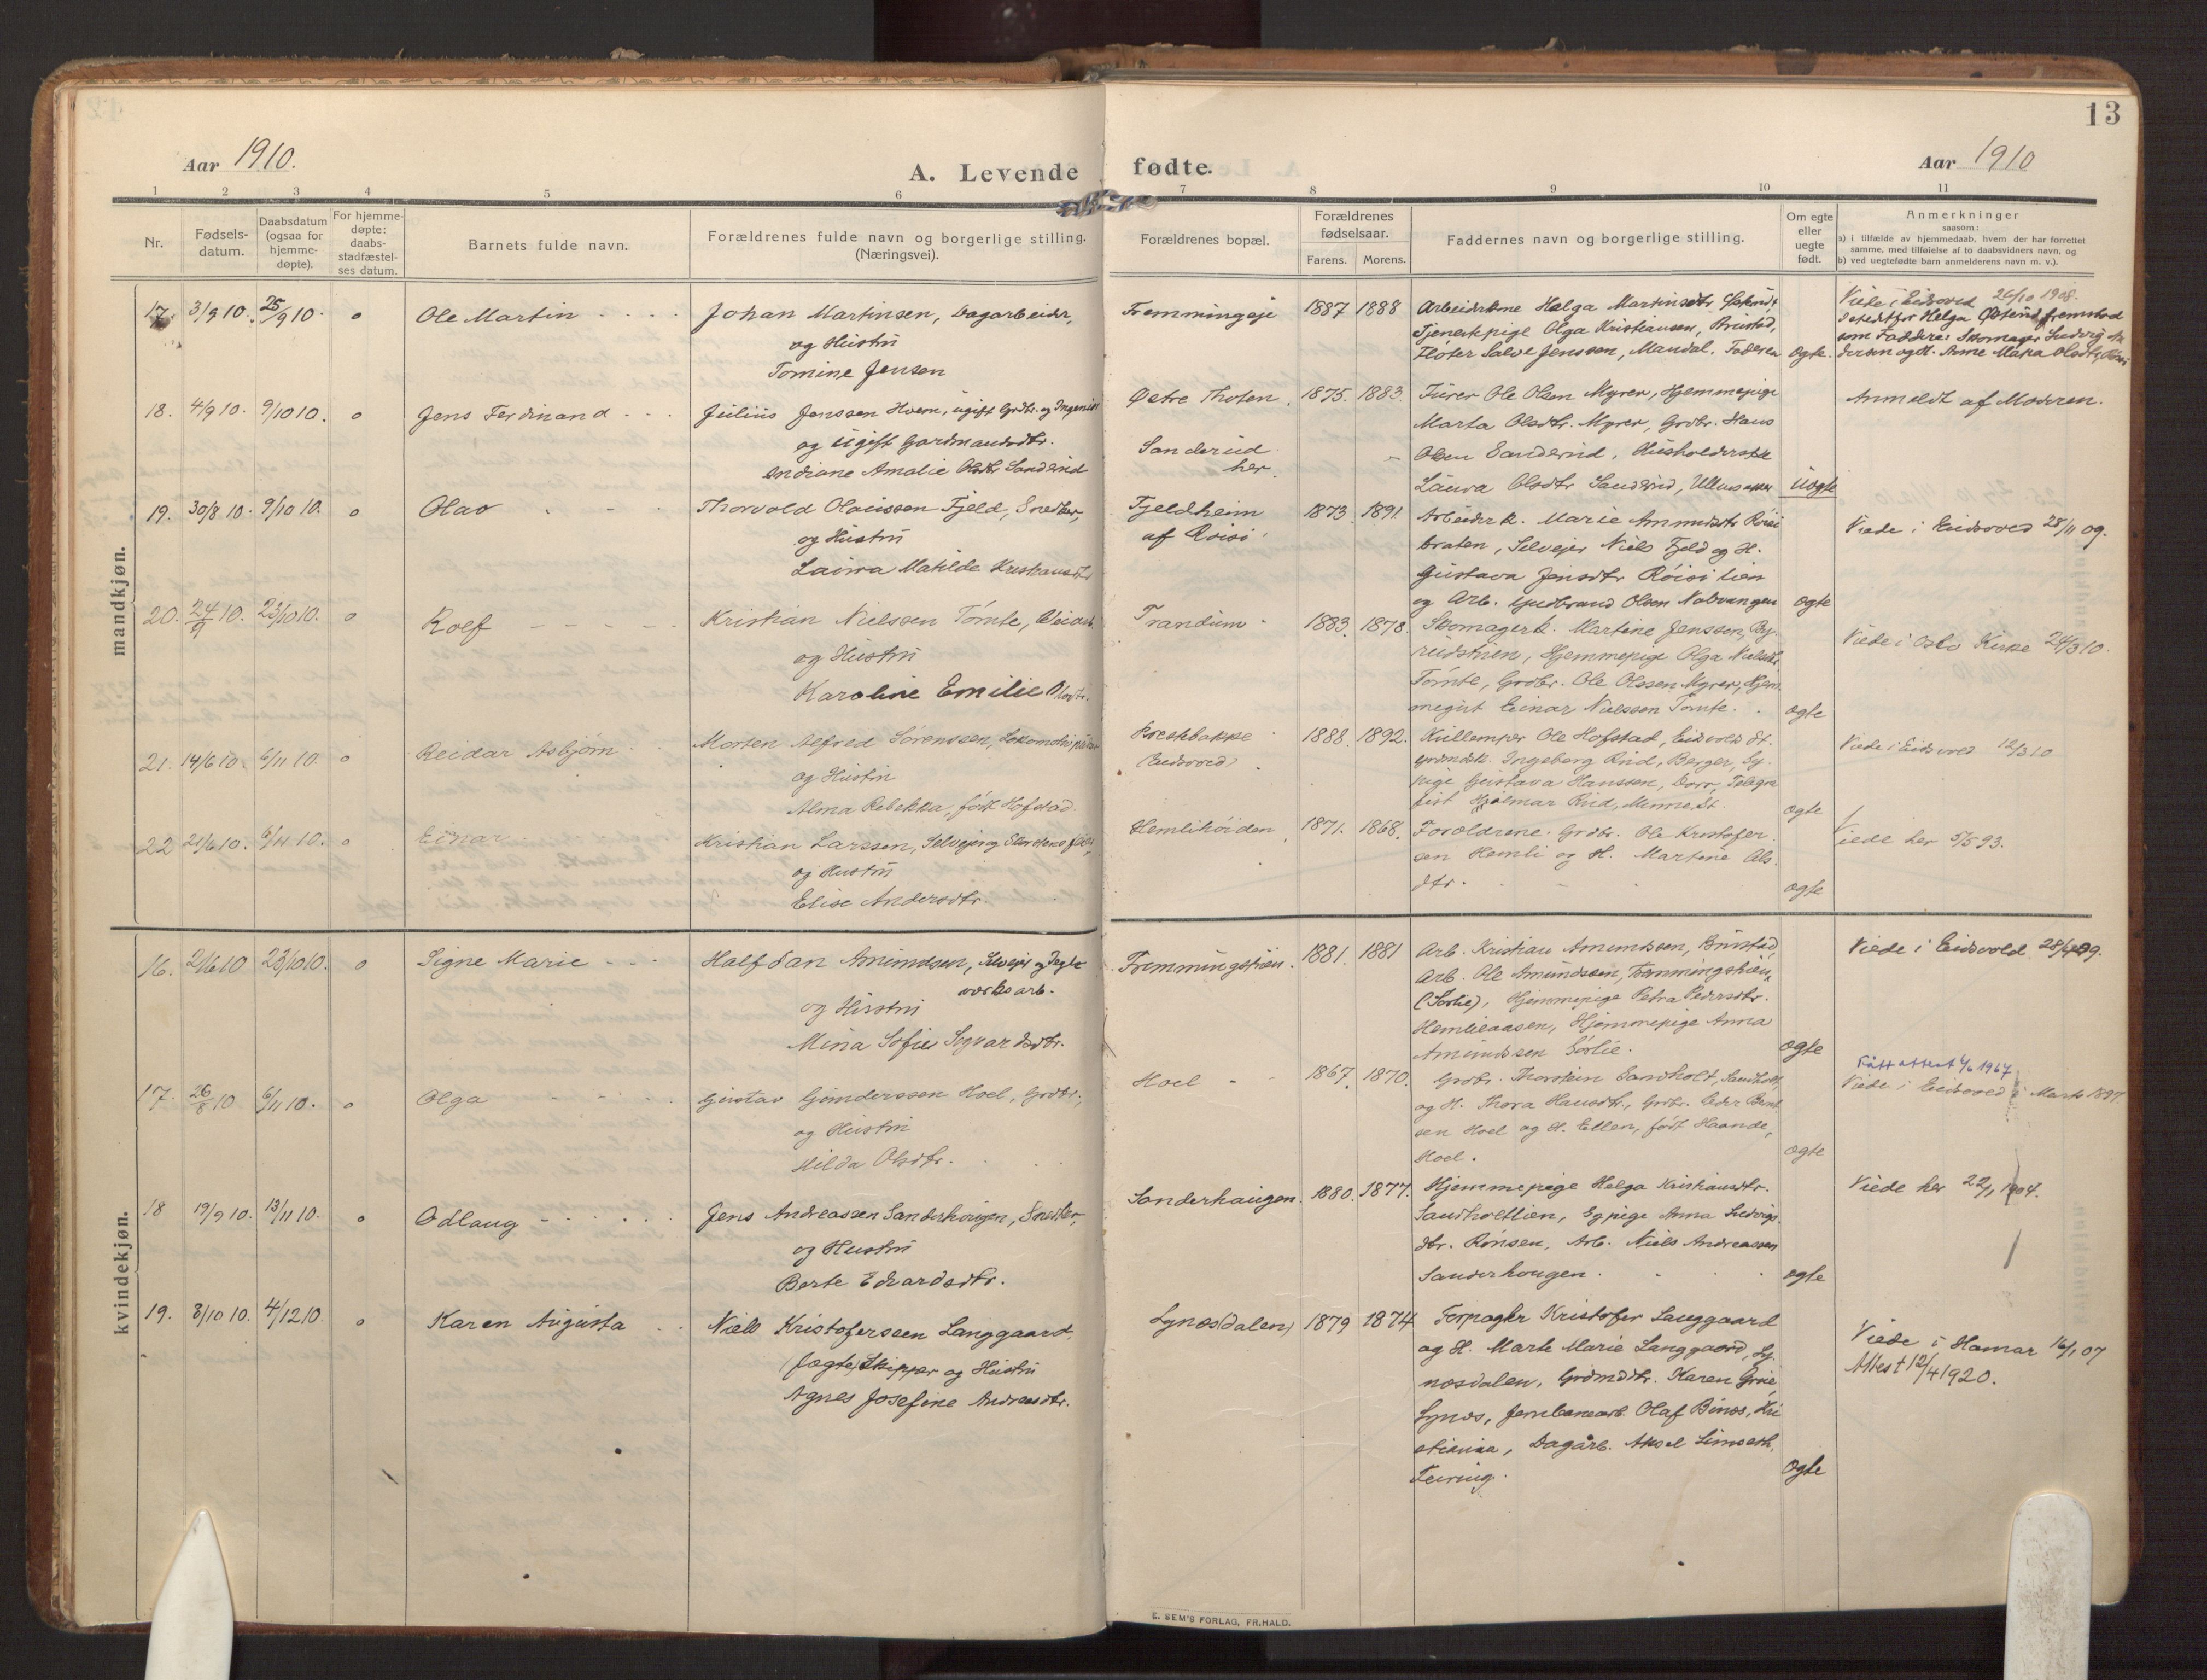 13
Aar 1910.
A. Levende fødte.
Aar 1910
1 2 3 4 5 6 7 8 9 10 11
Nr.
Fødsels-
datum.
Daabsdatum
(ogsaa for
hjemme-
døpte).
For hjemme-
døpte:
daabs-
stadfæstel-
ses datum.
Barnets fulde navn.
Forældrenes fulde navn og borgerlige stilling.
(Næringsvei).
Forældrenes bopæl.
Forældrenes
fødselsaar.
Farens. Morens.
Faddernes navn og borgerlige stilling.
Om egte
eller
uegte
født.
Anmerkninger
saasom:
a) i tilfælde av hjemmedaab, hvem der har forrettet
samme, med tilføielse af to daabsvidners navn, og
b) ved uegtefødte barn anmelderens navn m. v.).
mandkjøn.
17. 3/9 10. 25/9 10. o Ole Martin
Johan Martinsen, Dagarbeider,
og Hustru
Tomine Jensen
Fremmingeie 1887 1888
Arbeiderkone Helga Martinsdtr.
Tjenestepige Olga Kristiansen, Brustad,
Fløter Salve Jenssen, Mandal. Faderen
Ægte.
Viede i Eidsvold 26/10 1908.
Istedetfor Helga fremstod
som Fadder Skomager Ludvig An
dersen og H. Anne Maria Olsdtr.
18. 4/9 10. 9/10 10. o Jens Ferdinand
Julius Jenssen Hvem, ugift Grdbr. og
og Ugift Gardmandsdtr.
Indiane Amalie Olsdtr. Sanderud
Østre Thoten.
Sanderud
her.
1875. 1883.
Furer Ole Olsen Myrer, Hjemmepige
Marta Olsdtr. Myrer, Grdbr. Hans
Olsen Sanderud, Husholderske
Laura Olsdtr Sanderud,
Uægte
Anmeldt af Moderen.
19. 30/8 10. 9/10 10. o Olav
Thorvold Olaussen Fjeld, Snedker,
og Hustru
Laura Matilde Kristiansdtr
Fjeldheim
af Røisi
1873. 1891.
Arbeiderk. Marie Amundsdtr Røisi
braten, Selveier Niels Fjeld og H.
Gustava Jensdtr Røisilien
og Arb. Gudbrand Olsen
Ægte
Viede i Eidsvold 28/11 09.
20. 24/9 10. 23/10 10. o Rolf
Kristian Nielssen Tømte,
og Hustru
Karoline Emilie Olsdtr.
Trandum
1883. 1878.
Skomagerk. Martine Jenssen,
Hjemmepige Olga Nielsdtr.
Tømte, Grdbr. Ole Olssen Myrer, Hjem
megut Einar Nielssen Tømte.
Ægte
Viede i Oslo Kirke 24/3 10.
21. 14/6 10. 6/11 10. o Reidar Asbjørn
Morten Alfred Sørenssen,
og Hustru
Alma Rebekka, født Hofstad.
Prestebakke
Eidsvold
1888. 1892.
Ole Hofstad, Eidsvold St.
Ingeborg Rud, Berger, Sy-
pige Gustava Hanssen, Dorr, Telegra
fist Hjalmar Rud, Minne St.
Ægte
Viede i Eidsvold 12/3 10
22 21/6 10. 6/11 10. o Einar
Kristian Larssen, Selveier og
og Hustru
Elise Andersdtr.
Hemlihøiden
1871. 1868.
Forældrene. Grdbr. Ole Kristofer
sen Hemli og H. Martine Ols-
dtr.
Ægte
Viede her 5/5 93.
kvindekjøn.
16. 21/6 10 23/10 10. o Signe Marie
Halfdan Amundsen, Selveier og Tegl-
verksarb.
og Hustru
Mina Sofie Sigvardsdtr.
Fremmingstuen.
1881. 1881
Arb. Kristian Amundssen, Brustad,
Arb. Ole Amundssen, Fremmingstuen,
(Sørlie), Hjemmepige Petra Pedersdtr.
Hemlieaasen, Hjemmepige Anna
Amundssen Sørlie.
Ægte
Viede i Eidsvold
17. 26/8 10 6/11 10. o Olga
Gustav Gunderssen Hoel, Grdbr.,
og Hustru
Hilda Olsdtr.
Hoel
1867. 1870.
Grdbr. Thorstein Sandholt, Sandholt,
og H. Thora Hansdtr., Grdbr. Peder Bent
sen Hoel og H. Ellen, født Haande,
Hoel.
Ægte
Fått attest 1967
Viede i Eidsvold i Marts 1897.
18 19/9 10. 13/11 10. o Odlaug
Jens Andreassen Sanderhaugen, Snedker,
og Hustru
Berte Edvardsdtr.
Sanderhaugen.
1880. 1877.
Hjemmepige Helga Kristiansdtr.
Sandholtlien, Sypige Anna Ludvigs-
dtr. Rønsen, Arb. Niels Andreassen
Sanderhougen.
Ægte
Viede her 22/1 1904.
19. 8/10 10. 4/12 10. o Karen Augusta
Niels Kristoferssen Langgaard,
Jægte Skipper og Hustru
Agnes Josefine Andreasdtr.
Synæs(dalen)
1879 1874
Forpagter Kristofer Langgaard
og H. Marte Marie Langgaard, Sy-
næsdalen, Grdmdtr. Karen Grue,
Synæs, Jernbanearb. Olaf Binæs, Kri
stiania, Dagarb. Aksel Limseth,
Feiring.
Ægte
Viede i Hamar 16/1 07
Attest 12/4 1920.
E. SEM'S FORLAG, FR.HALD.